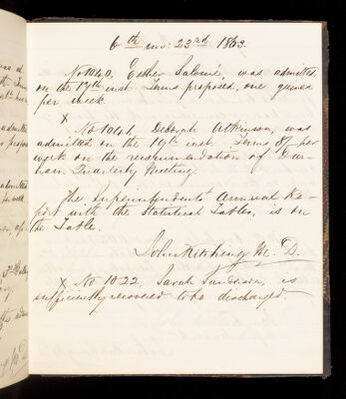 6th mo: 23rd 1863.
No 1040, Esther Salomé, was admitted
on the 17th inst. Terms proposed, one guinea
per week.
x
No 1041, Deborah Atkinson, was
admitted on the 19th inst. Terms 8/- per
week on the recommendation of Dur-
ham Quarterly Meeting.
The Superintendents Annual Re-
port with the Statistical Tables, is on
the Table.
John Kitching M. D.
x No 1022, Sarah, is
sufficiently recovered to be discharged.